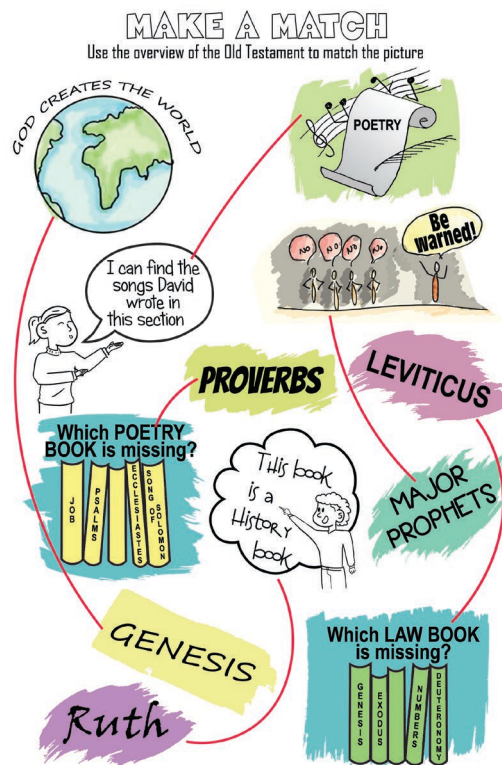 MAKE A MATCH
Use the overview of the Old Testament to match the picture
GOD CREATES THE WORLD
POETRY
NO
NO
NO
No
Be
warned!
I can find the
songs David
wrote in
this section
PROVERBS
LEVITICUS
Which POETRY
BOOK is missing?
JOB
PSALMS
ECCLESIASTES
SONG OF
SOLOMON
This book
is a
History
book
MAJOR
PROPHETS
GENESIS
Which LAW BOOK
is missing?
GENESIS
EXODUS
NUMBERS
DEUTERONOMY
Ruth